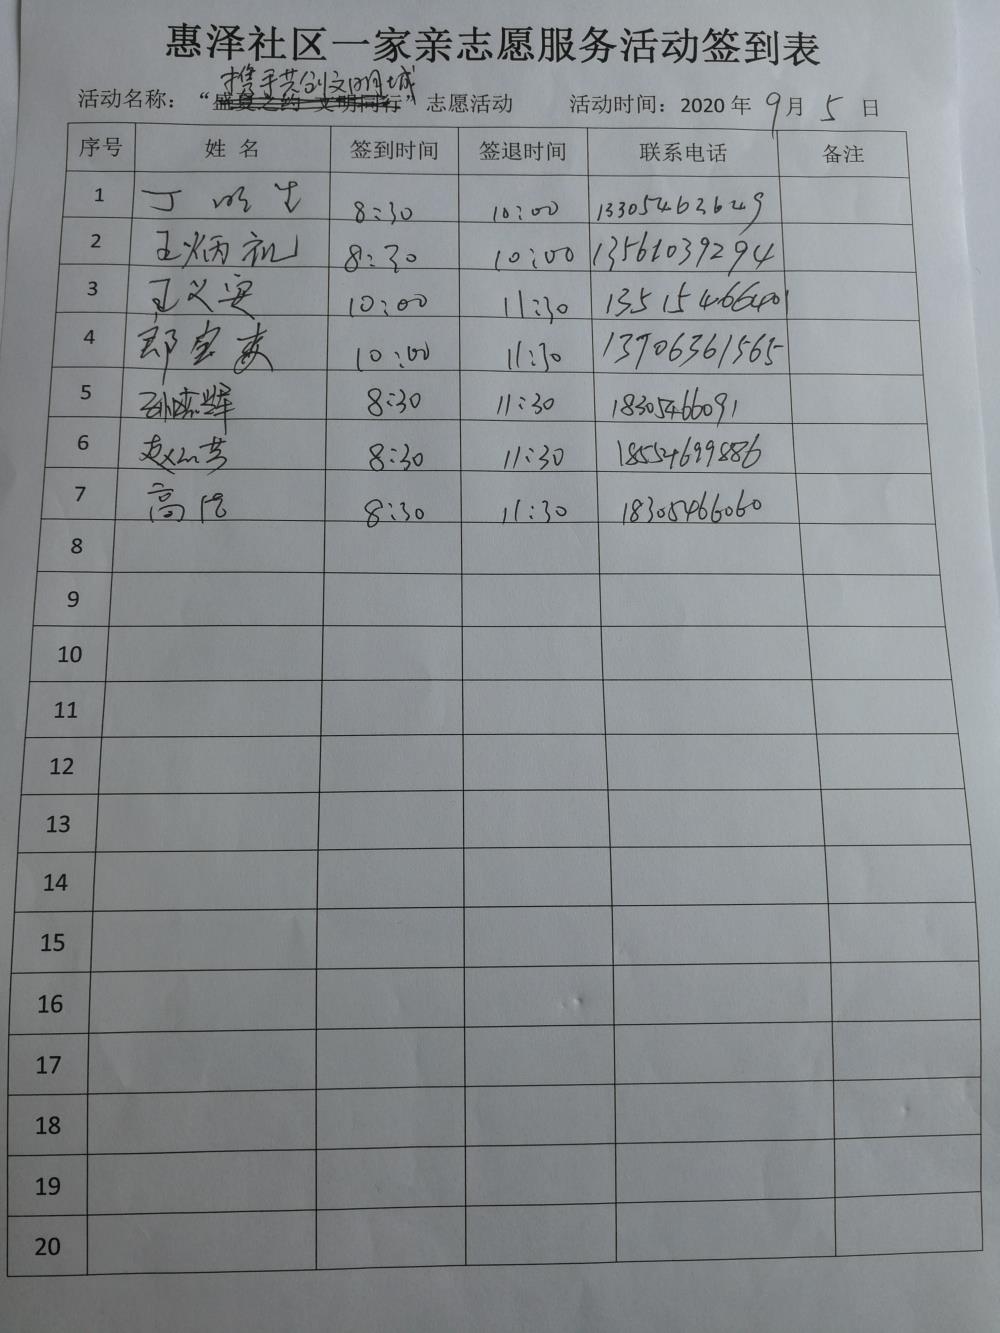 惠泽社区一家亲志愿服务活动签到表
携手共创文明城
活动名称：“盛夏之约 文明同行”志愿活动 活动时间：2020 年 9 月 5 日
序号 姓 名 签到时间 签退时间 联系电话 备注
1 丁明生 8:30 10:00 13305463649
2 王炳礼 8:30 10:00 13561039294
3 王义宝 10:00 11:30 13515466401
4 郎宝 10:00 11:30 13906361565
5 孙志辉 8:30 11:30 18305466091
6 赵 芸 8:30 11:30 18554699886
7 高 8:30 11:30 18305466060
8
9
10
11
12
13
14
15
16
17
18
19
20